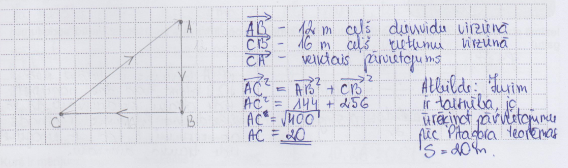 A
B
C
AB - 12 m ceļš dienvidu virzienā
CB - 16 m ceļš rietumu virzienā
CA - veiktais pārvietojums
AC² = AB² + CB²
AC² = 144 + 256
AC = √400
AC = 20
Atbilde: Jurim
ir taisnība, jo
izrēķinot pārvietojumu
pēc Pitagora teorēmas
S = 20m.